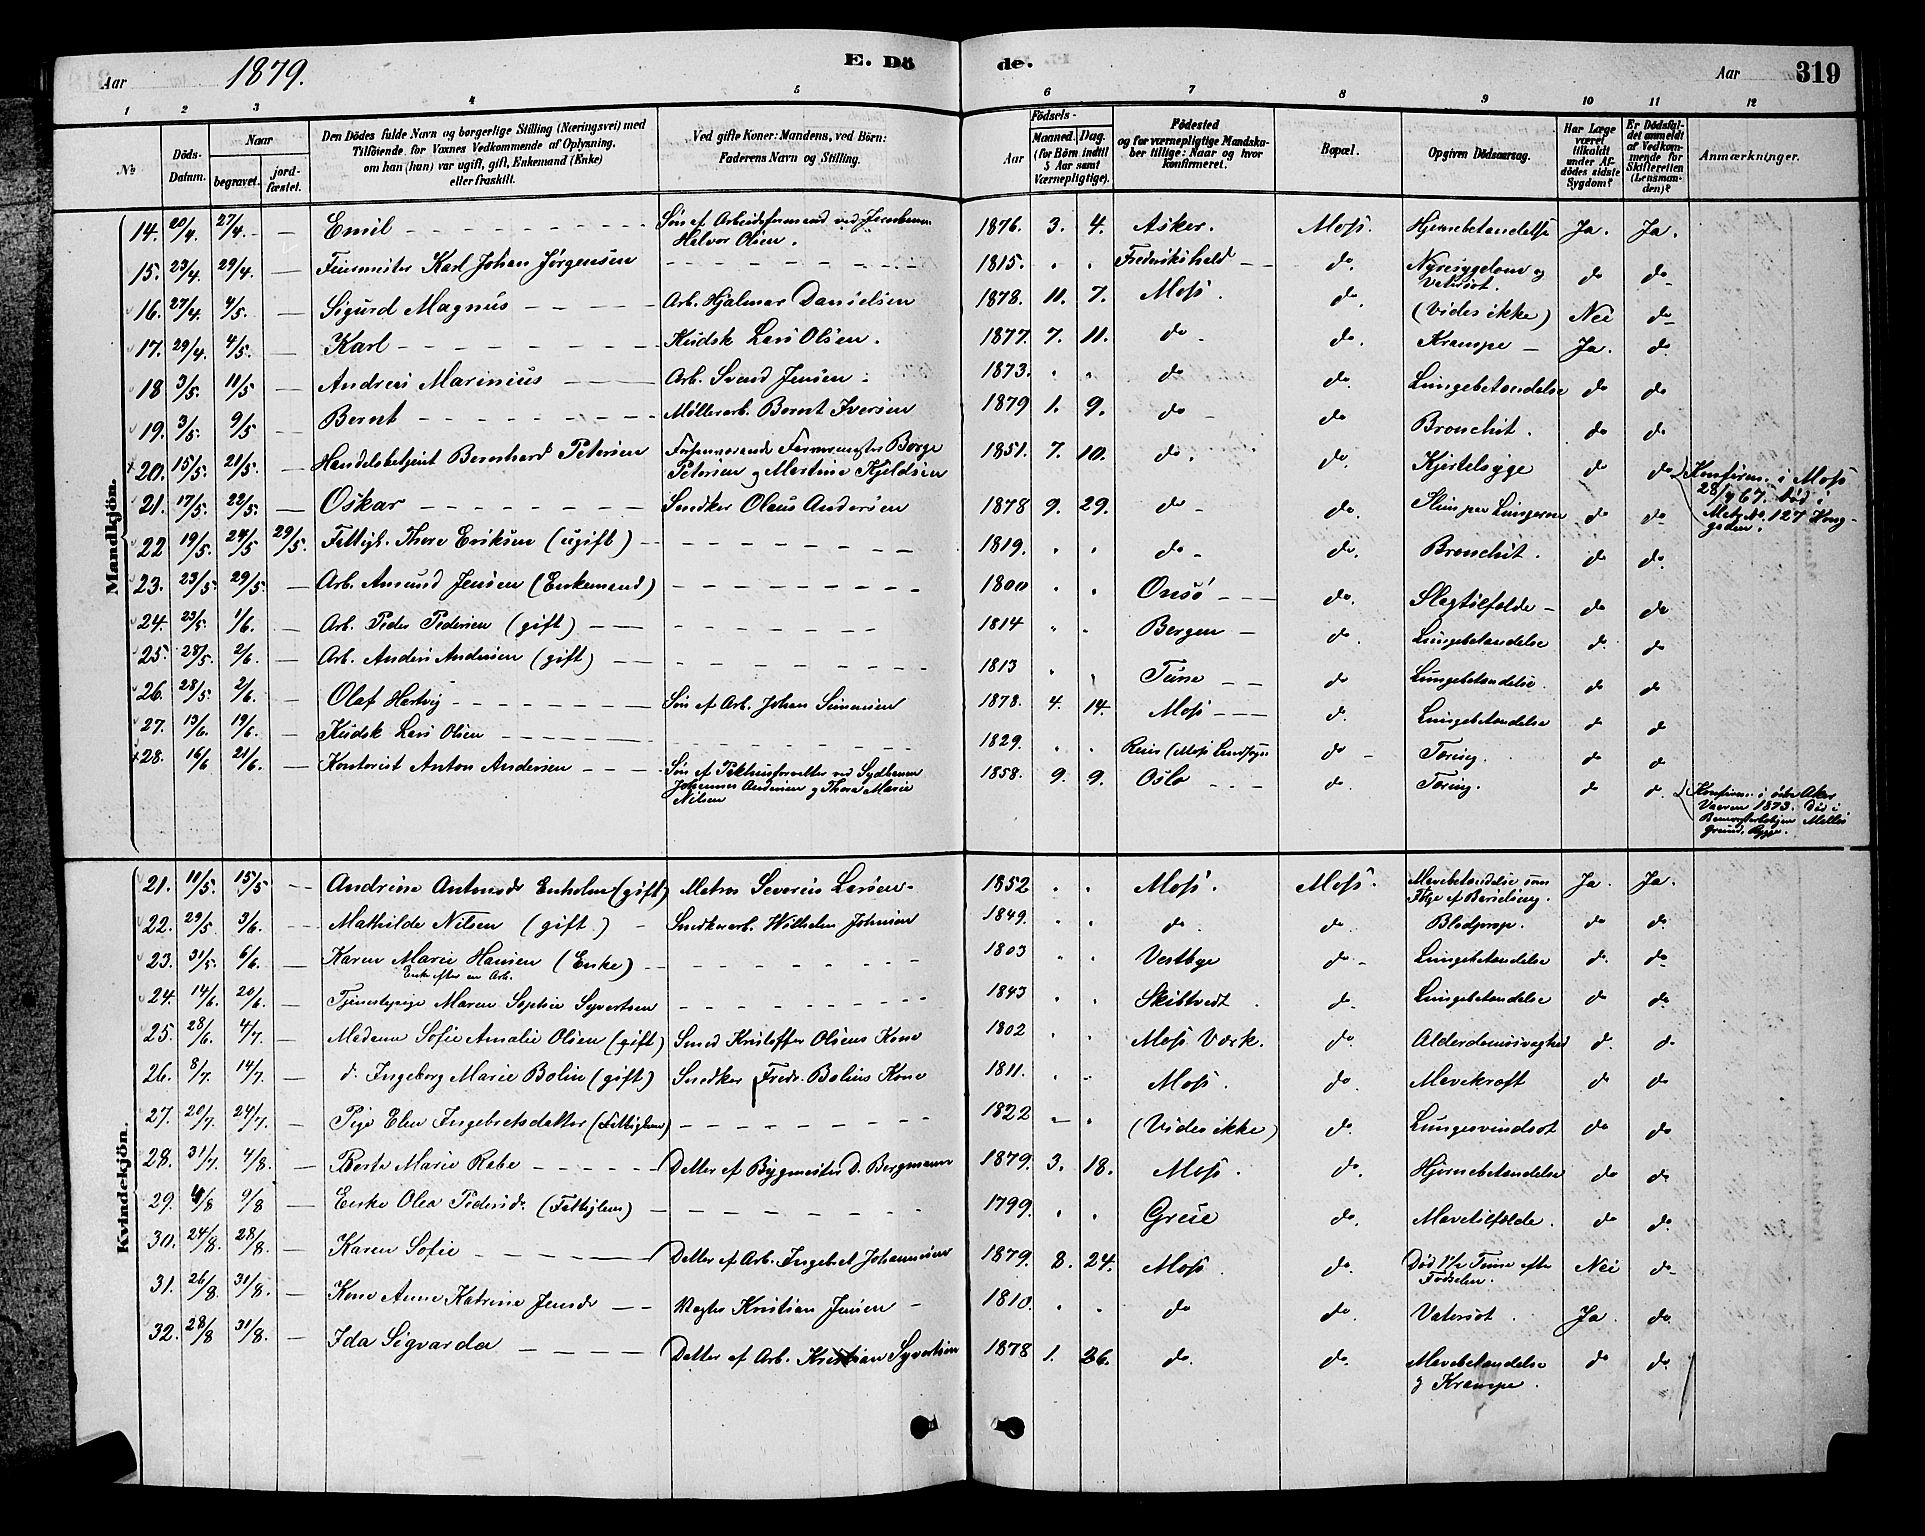 Aar 1879. E. Dö de. Aar 319
1 2 3 4 5 6 7 8 9 10 11 12
№ Döds-Datum. Naar begravet. jord-fæstet. Den Dödes fulde Navn og borgerlige Stilling (Næringsvei) med Tilföiende for Voxnes Vedkommende af Oplysning, om han (hun) var ugift, gift, Enkemand (Enke) eller fraskilt. Ved gifte Koner: Mandens, ved Börn: Faderens Navn og Stilling. Födsels- Aar Maaned. Dag. (for Börn indtil 5 Aar samt Værnepligtige). Födested og for værnepligtige Mandska-ber tillige: Naar og hvor konfirmeret. Bopæl. Opgiven Dödsaarsag. Har Læge været tilkaldt under Af-dödes sidste Sygdom? Er Dödsfal-det anmeldt af Vedkom-mende for Skifteretten (Lensman-den)? Anmærkninger.
Mandkjön.
14. 20/4. 27/4. — Emil Søn af Arbeidsformand ved Jernbanen Halvor Olsen. 1876. 3. 4. Asker. Moss. Hjernebetændelse Ja. Ja.
15. 23/4. 29/4. — Karl Johan Jørgensen 1815. Frederikshald do. Nyresygdom og Vatersot. do do
16. 27/4. 4/5. — Sigurd Magnus Arb. Hjalmar Danielsen 1878. 11. 7. Moss. do. (Vides ikke) Nei do
17. 29/4. 4/5. — Karl Kudsk Lars Olsen. 1877. 7. 11. do do. Krampe Ja. do.
18 3/5. 11/5. — Andreas Marinius Arb. Svend Jensen. 1873. do do. Lungebetændelse do do
19. 3/5. 9/5. — Bernt Møllerarb. Bernt Iversen 1879 1. 9. do do Bronchit. do do
20. 15/5. 21/5. — Handelsbetjent Bernhard Petersen Forhenværende Farvermester Borge Petersen og Martine Kjeldsen 1851. 7. 10. do. do. Kjertelsyge do do Konfirm. i Moss 28/4 67. Død i Mat. No. 127 Konggaden.
21. 17/5. 22/5. — Oskar Snedker Olaus Andersen 1878 9. 29. do do. Slim paa Lungerne do do
22 19/5. 24/5 29/5. Fattigl. Thore Eriksen (ugift) 1819. do do. Bronchit. do do.
23. 23/5. 29/5. — Arb. Amund Jensen (Enkemand) 1800 Onsø do. Slagtilfælde do do
24. 23/5. 1/6. — Arb. Peder Pedersen (gift) 1814 Bergen do. Lungebetændelse do. do
25. 28/5. 2/6. — Arb. Anders Andersen (gift) 1813 Tune do Lungebetændelse. do do
26. 28/5. 2/6. — Olaf Hartvig Søn af Arb. Johan Simensen 1878. 4. 14. Moss d. Lungebetændelse do do
27. 13/6. 19/6. — Kudsk Lars Olsen 1829. (Moss Landsogn do Tæring. do do
28. 16/6 21/6. — Kontorist Anton Andersen Søn af Pakhusforvalter ved Sydbanen Johannes Andersen og Thora Marie Nilsen 1858. 9. 9. Oslo do. Tæring. do d. Konfirm. i østre Aker Vaaren 1873. Død i
Kvindekjön.
21. 11/5. 15/5 — Andrine Antonsdr Enholm (gift) Matros Severin Larsen 1852 Moss. Moss. Mavebetændelse som Følge af Barselseng. Ja. Ja.
22. 29/5 3/6. — Mathilde Nilsen (gift.) Snedkerarb. Wilhelm Johnsen 1849. do. do. Blodprop. do do.
23. 31/5. 6/6. — Karen Marie Hansen (Enke) Enke efter en Arb. 1803 Vestbye do Lungebetændelse do. do
24. 14/6. 20/6. — Tjenestepige Maren Sophie Syvertsen 1843 Skibtvedt do. Lungebetændelse do do.
25. 28/6. 4/7. — Madame Sofie Amalie Olsen (gift) Smed Kristoffer Olsens Kone 1802 Moss Værk. do. Alderdomssvaghed d. d
26. 8/7. 14/7. — d. Ingeborg Marie Bolin (gift) Snedker Fredr. Bolins Kone 1811. Moss. do. Mavekræft do do
27. 20/7. 24/7. — Pige Elen Ingebretsdatter (Fattiglem) 1822 (Vides ikke) do. Lungesvindsot do do
28. 31/7. 4/8. — Marie Rebe Datter af Bygmester D. Bergmann 1879. 3. 18. Moss. do. Hjernebetændelse do do.
29. 4/8 9/8 — Enke Olea Pedersdr. (Fattiglem) 1799. Grue do. Mavetilfælde. do do.
30. 24/8. 28/8. — Karen Sofie Datter af Arb. Ingebret Johannesen 1879. 8. 24. Moss. do. Død 1½ Time efter Fødselen. Nei do
31. 26/8. 31/8. — Kone Anne Katrine Jensdr Vægter Kristian Jensen 1810. do do. Vatersot. Ja. do.
32. 28/8 31/8. — Ida Sigvarda Datter af Arb. Kristian Syvertsen 1878 1. 26. do. do. Mavebetændelse og Krampe. do do.